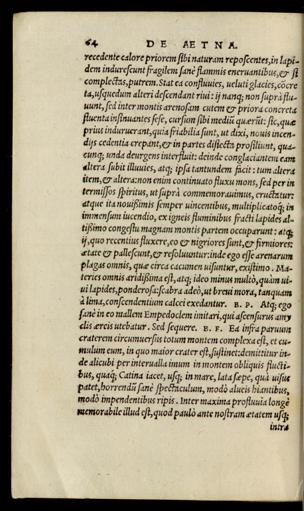 64 DE AETNA.
recedente calore priorem sibi naturam reposcentes, in lapi-
dem indurescunt fragilem sanè flammis eneruantibus, & si
complectas, putrem. Stat ea confluuies, ueluti glacies, cōcre
ta, usquedum alteri descendant riui: ij nanq; non suprà flu-
uunt, sed inter montis arenosam cutem & priora concreta
fluenta insinuantes sese, cursum sibi mediū quærūt: sic, quæ
prius induruerunt, quia friabilia sunt, ut dixi, nouis incen-
dijs cedentia crepant, & in partes disiecta prosiliunt, quæ-
cunq; unda deurgens interfluit: deinde conglaciantem eam
altera subit illuuies, atq; ipsa tantundem facit: tum altera
item, & altera: non enim continuato fluxu mons, sed per in
termissos spiritus, ut suprà commemorauimus, eructatur:
atque ita nouissimis semper uincentibus, multiplicatoq; in
immensum iucendio, ex igneis fluminibus fracti lapides al-
tissimo congestu magnam montis partem occuparunt: atq;
ij, quo recentius fluxere, eo & nigriores sunt, & firmiores:
ætate & pallescunt, & resoluuntur: inde ego esse arenarum
plagas omnis, quæ circa cacumen uisuntur, existimo. Ma-
teries omnis aridissima est, atq; ideo minus multò, quàm ui-
ui lapides, ponderosa: scabra adeò, ut breui mora, tanquam
à lima, conscendentium calcei exedantur. B. P. Atq; ego
sanè in eo mallem Empedoclem imitari, qui ascensurus amy
clis æreis utebatur. Sed sequere. B. F. Ea infra paruum
craterem circumuersus totum montem complexa est, et cu-
mulum eum, in quo maior crater est, sustinet: demittitur in-
de alicubi per interualla imum in montem obliquis flucti-
bus, quaq; Catina iacet, usq; in mare, lata sæpe, quà uisus
patet, horrendū sanè spectaculum, modò alueis hiantibus,
modò impendentibus ripis. Inter maxima profluuia longè
memorabile illud est, quod paulò ante nostram ætatem usq;
intra